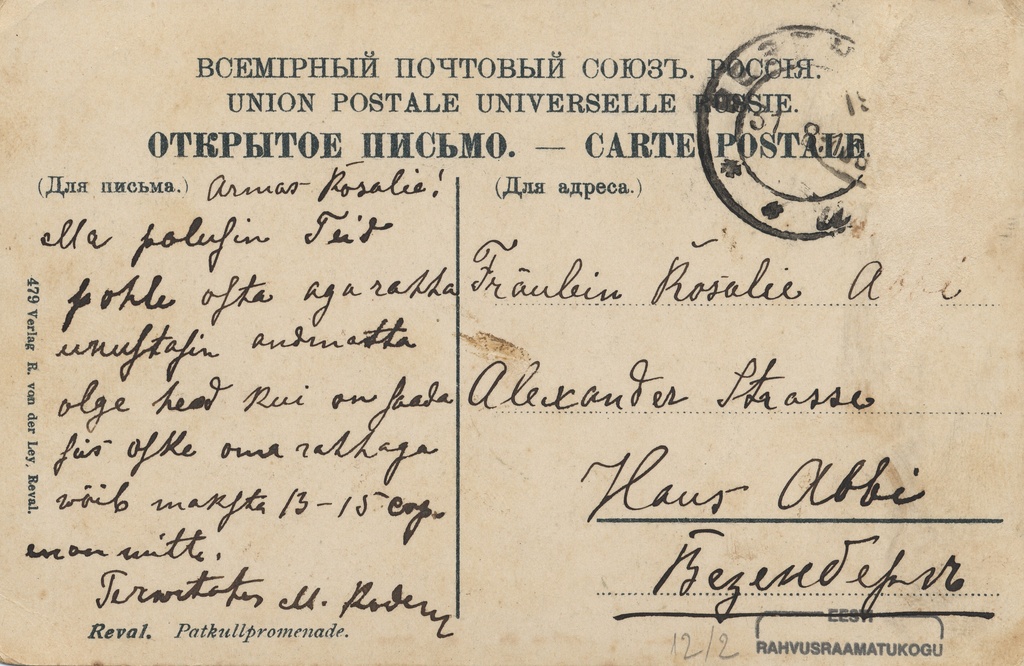 ВСЕМІРНЫЙ ПОЧТОВЫЙ СОЮЗЪ. РОССІЯ.
UNION POSTALE UNIVERSELLE RUSSIE.
ОТКРЫТОЕ ПИСЬМО. — CARTE POSTALE
(Для письма.)
Armas Rosalie!
Ma palusin Teid
pohle osta aga rahha
unustasin andmatta
olge head kui on saada
siis oske oma rahhaga
wõib maksta 13-15 cop.
enam mitte.
Terwitates M.
Reval. Patkullpromenade.
479 Verlag R. von der Ley, Reval.
(Для адреса.)
Fräulein Rosalie
Alexander Strasse
Haus Abbi
Везенбергъ
12/2
EESTI
RAHVUSRAAMATUKOGU